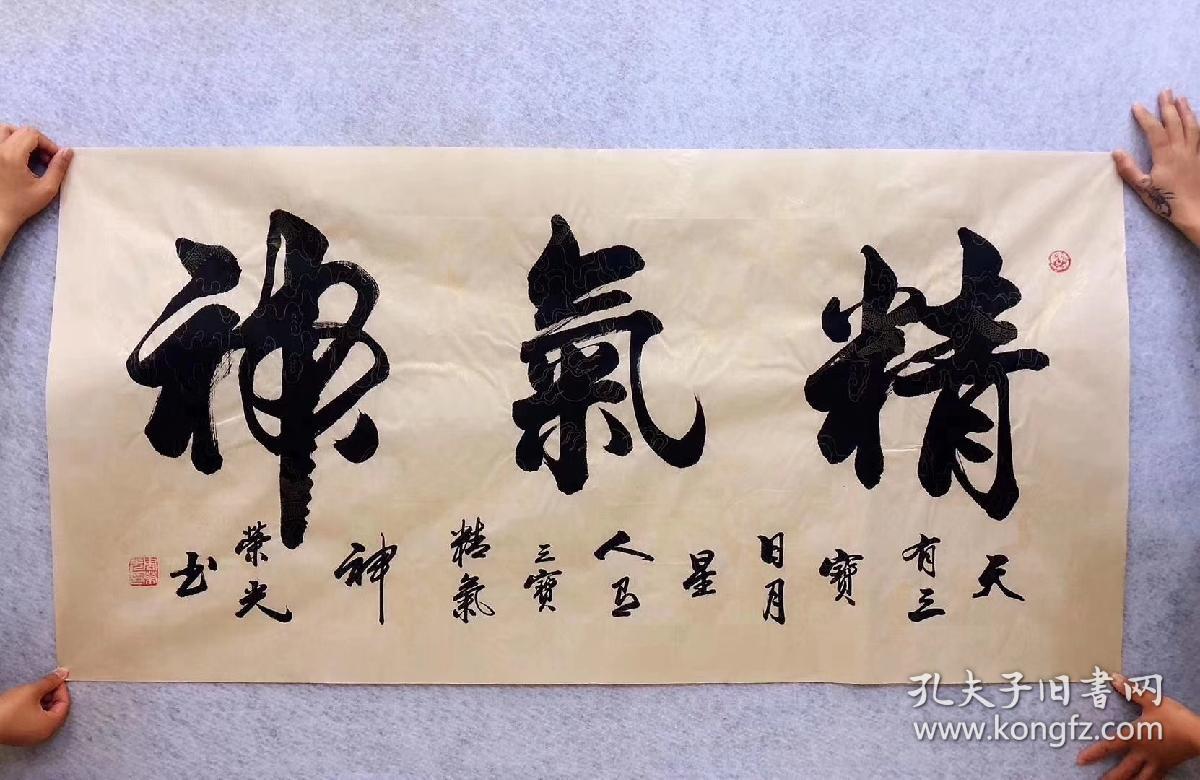 精氣神
天有三寶日月星人有三寶精氣神
榮光书
孔夫子旧书网
www.kongfz.com